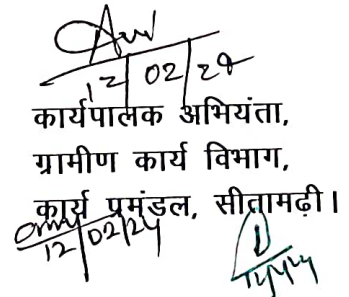 12/02/24
कार्यपालक अभियंता,
ग्रामीण कार्य विभाग,
कार्य प्रमंडल, सीतामढ़ी।
12/02/24